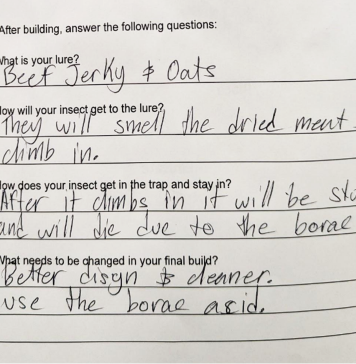 After building, answer the following questions:
What is your lure?
Beef Jerky & Oats
How will your insect get to the lure?
They will smell the dried meat
climb in.
How does your insect get in the trap and stay in?
After it climbs in it will be
and will die due to the borac
What needs to be changed in your final build?
Better disgn & cleaner.
use the borac asid.